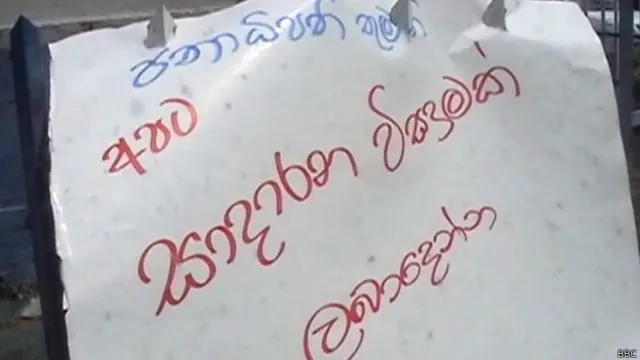 ජනාධිපති තුමනි
අපට
සාදාරන විසඳුමක්
ලබාදෙන්න
BBC